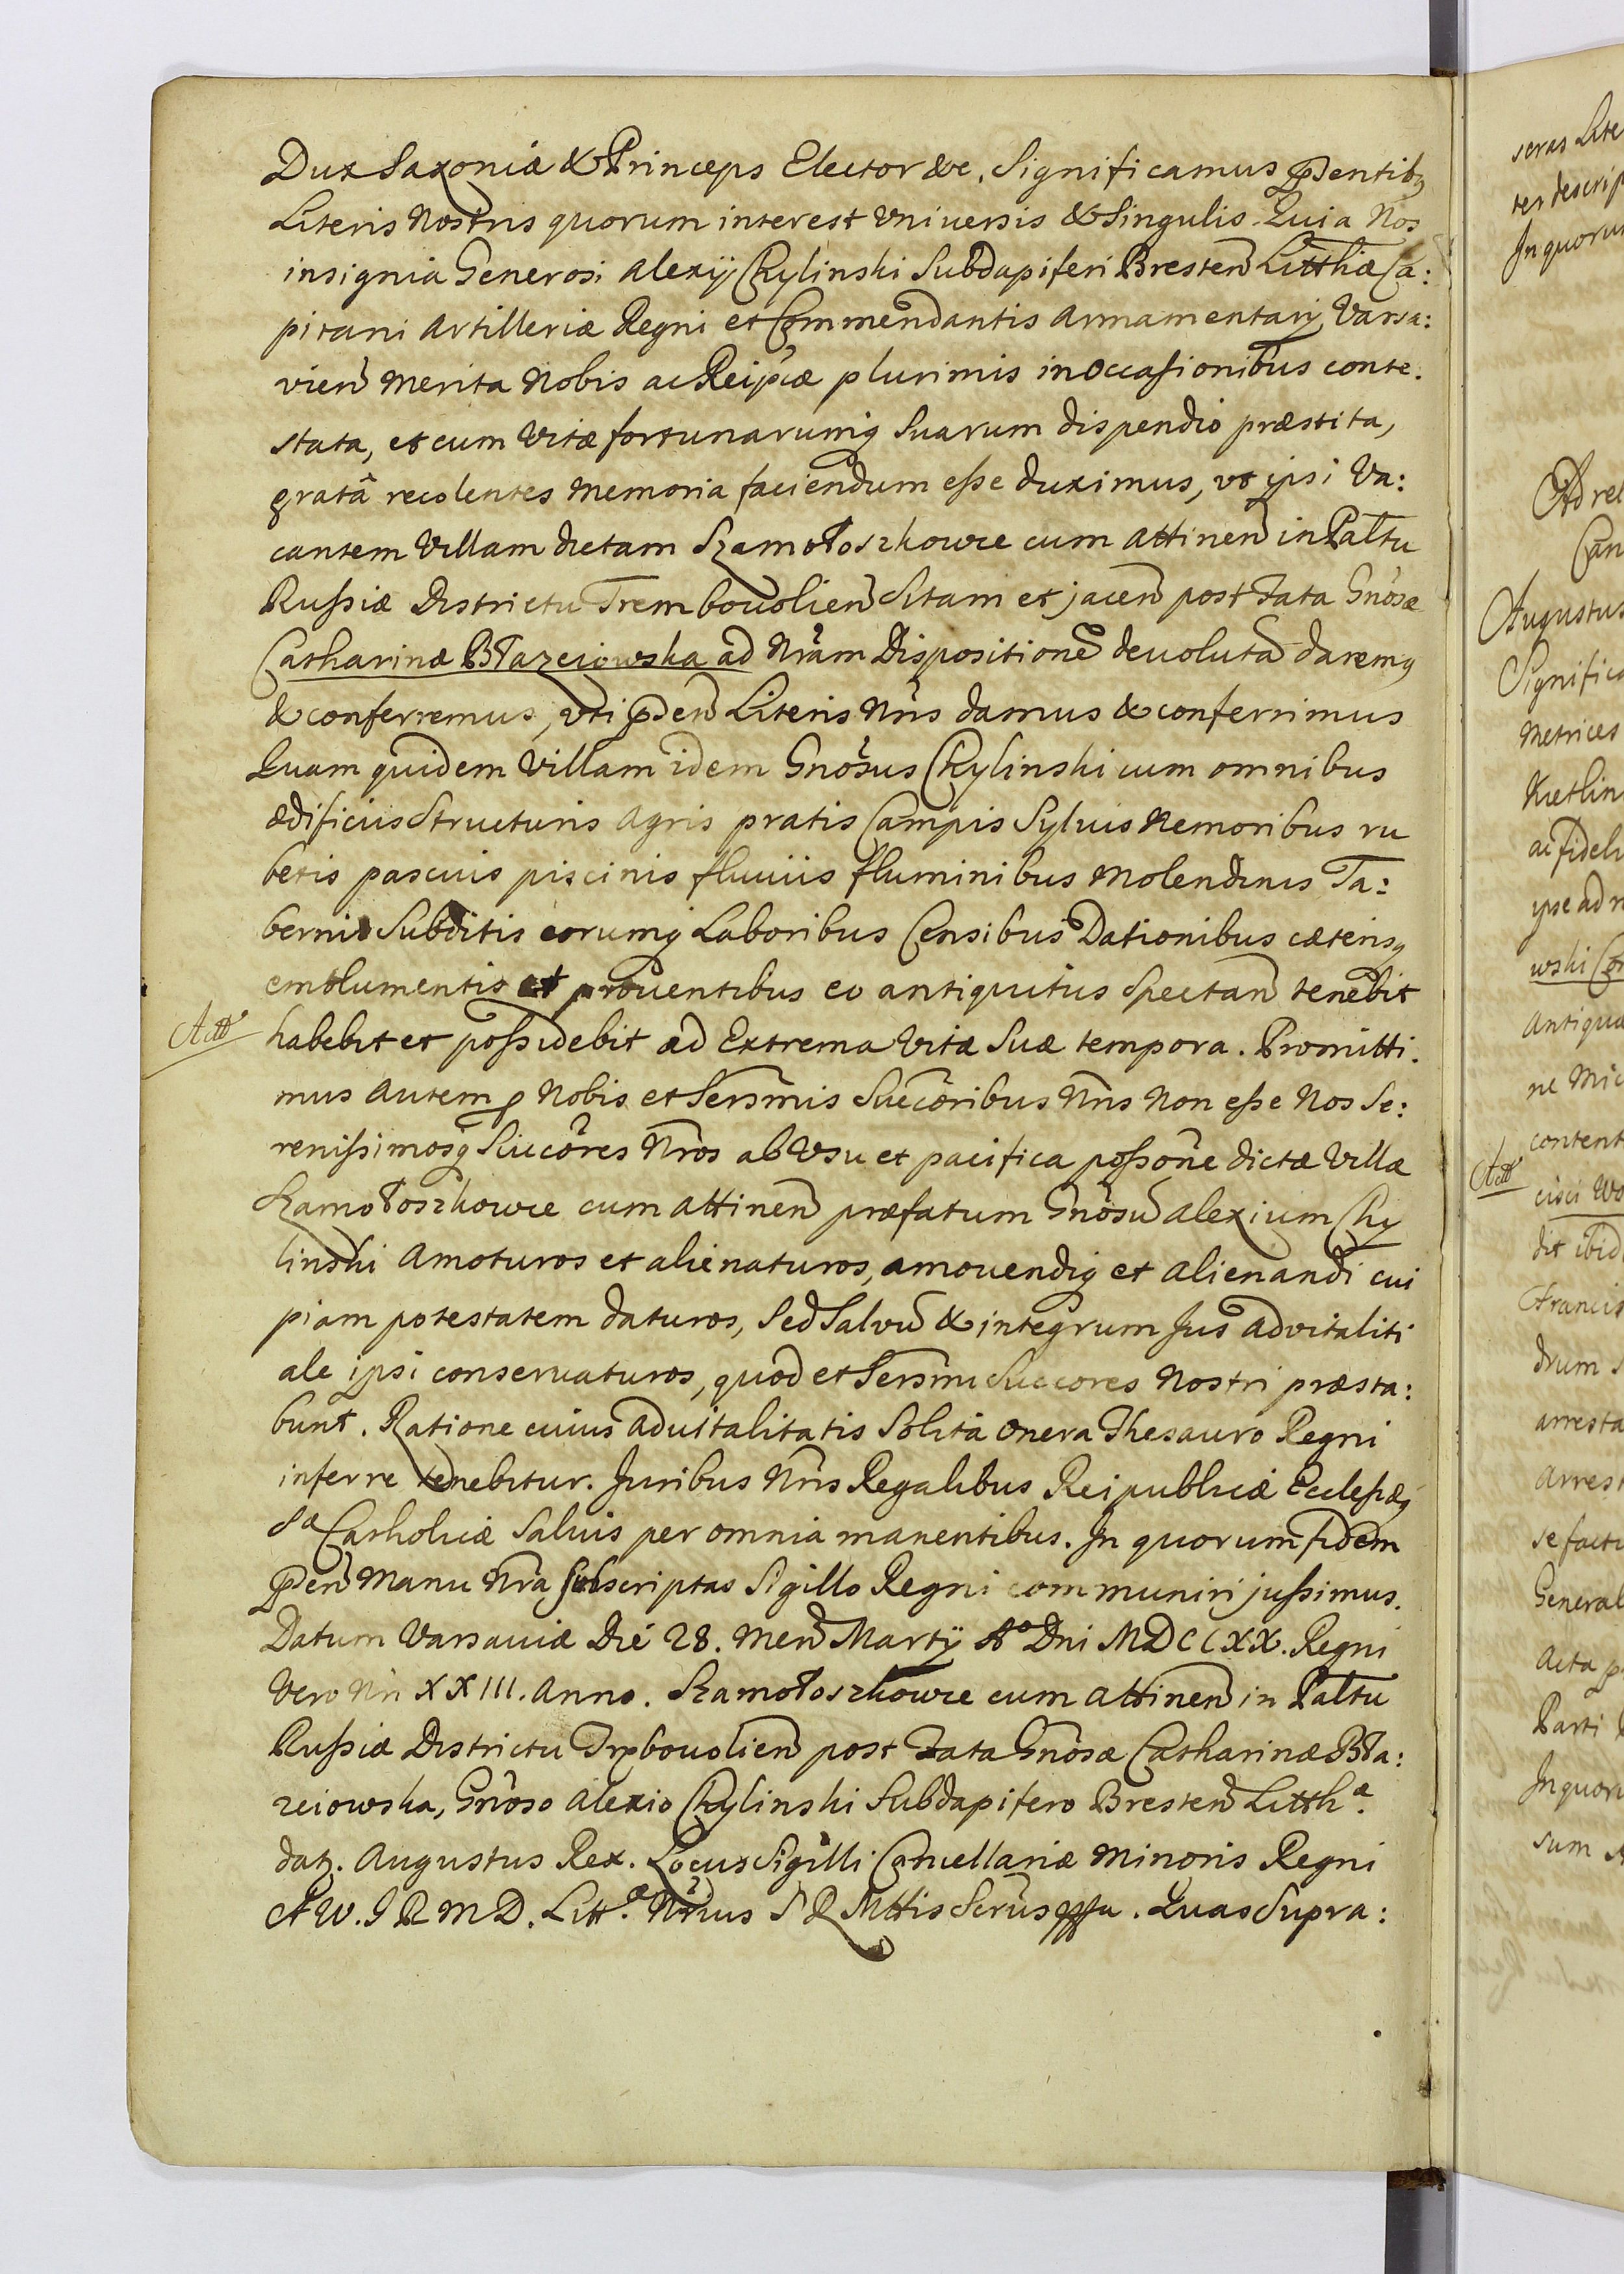 Dux Saxoniæ & Princeps Elector &c. Significamus pñdentibq
Literis Nostris quorum interest Vniuersis & Singulis. Quia Nos
insignia Generosi Alexij Chylinski Subdapiferi Bresteñ Litthiæ Ca:
pitani Artilleriæ Regni et Commendantis Armamentarij Varsa:
vieñ Merita Nobis ac Reipcæ plurimis in Occasionibus conte:
stata, et cum Vitæ fortunarumq Suarum dispendio præstita,
gratâ recolentes Memoria faciendum eſse duximus, vt ipsi Va:
cantem Villam dictam Szamotoszkowce cum Attineñ in Paltu
Rußiæ Districtu Trembowolieñ Sitam et jaceñ post Fata Gnosæ
Catharinæ Błazeiowska ad Nram Dispositionẽ deuolutã daremq
& conferremus, vti pñdeñ Literis Nris damus & conferrimus
Quam quidem Villam idem Gnosus Chylinski cum omnibus
ædificiis Structuris Agris pratis Campis Syluis Nemoribus ru
betis pascuis piscinis fluuiis fluminibus Molendinis Ta:
bernis Subditis eorumq Laboribus Censibus Dationibus cæterisq
emolumentis et prouentibus eo antiquitus Spectañ tenebit
Actt
habebit et poßidebit ad Extrema Vitæ Suæ tempora. Promitti:
mus Autem p Nobis et Sersmis Succoribus Nris Non eſse Nos Se:
renißimosq Succores Nros ab Vsu et pacifica poßone dictæ Villæ
Szamotoszkowce cum Attineñ præfatum Gnosũ Alexium Chy
linski Amoturos et alienaturos, amouendiq et Alienandi cui
piam potestatem daturos, Sed Salvũ & integrum Jus Advitaliti
ale ipsi conseruaturos, quod et Sersmi Succores Nostri præsta:
bunt. Ratione cuius Aduitalitatis Solita Onera Thesauro Regni
inferre tenebitur. Juribus Nris Regalibus Reipublicæ Ecclesiæq
Sæ Catholicæ Saluis per omnia manentibus. In quorum fidem
pñdeñ Manu Nra Subscriptas Sigillo Regni communiri jußimus.
Datum Varsauiæ Die 28. Meñ Martij Ao Dni MDCCXX. Regni
Vero Nri XXIII. Anno. Szamotoszkowce cum Attineñ in Paltu
Rußiæ Districtu Trębouolieñ post Fata Gnosæ Catharinæ Bła:
zeiowska, Gnoso Alexio Chylinski Subdapifero Bresteñ Litthæ.
datq. Augustus Rex. Locus Sigilli Cancellariæ Minoris Regni
A W. J R M D. Littæ. Nrius S R Mttis Serus mppa. Quas Supra:
Actt